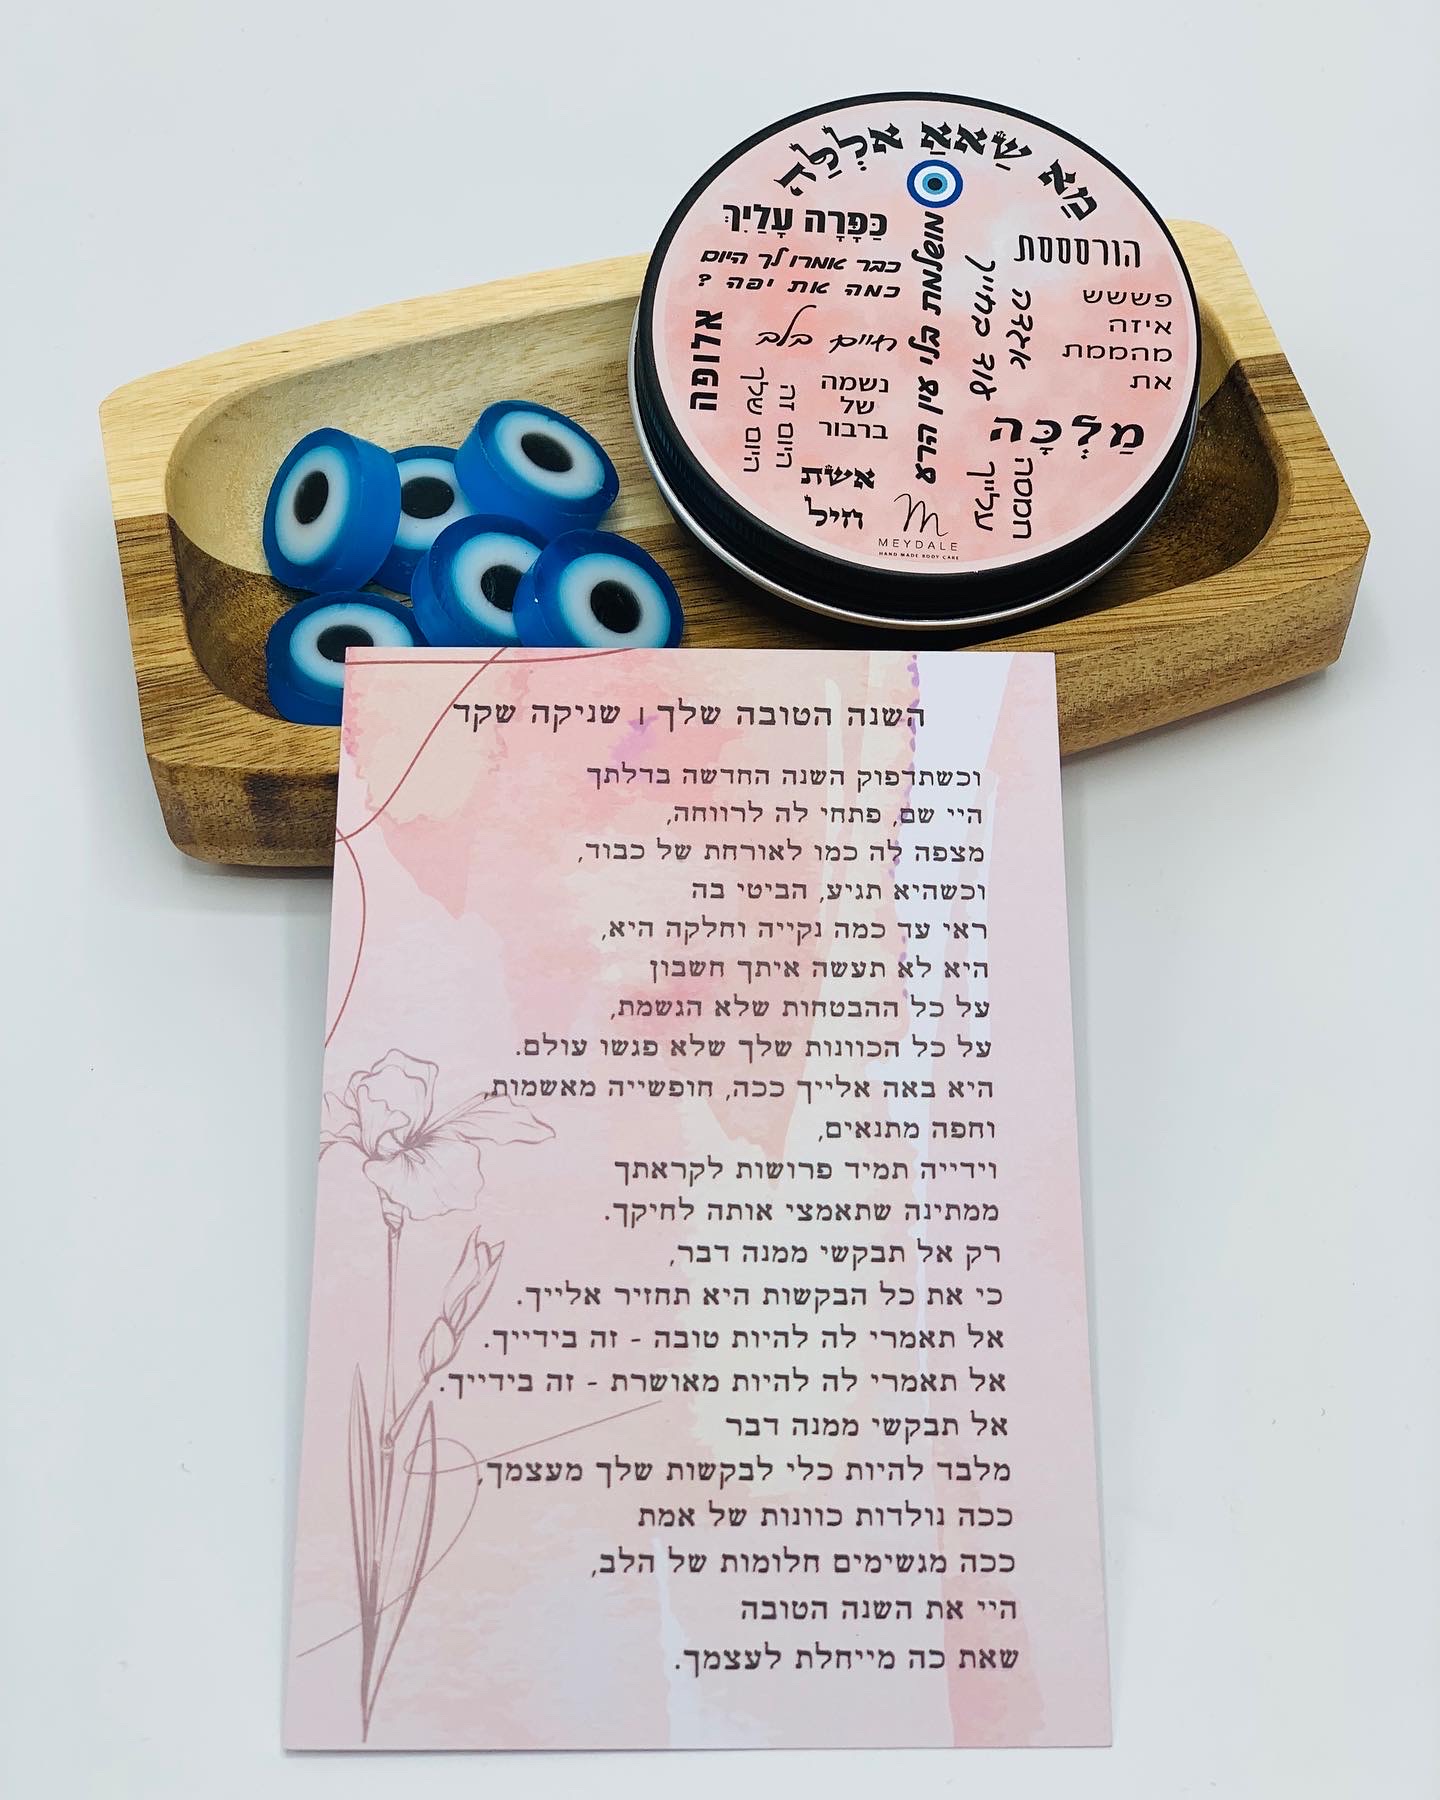 מַא שַׁאאַ אלְלַה
כַּפָּרָה עָלַיִךְ
כבר אמרו לך היום
כמה את יפה ?
חיים בלב
אלופה
היום זה
היום שלך
נשמה
של
ברבור
אשת
חיל
מושלמת בלי עין הרע
הורסססת
פששש
איזה
מהממת
את
מַלְכָּה
חמסה
עלייך
MEYDALE
HAND MADE BODY CARE
השנה הטובה שלך | שניקה שקד
וכשתדפוק השנה החדשה בדלתך
היי שם, פתחי לה לרווחה,
מצפה לה כמו לאורחת של כבוד,
וכשהיא תגיע, הביטי בה
ראי עד כמה נקייה וחלקה היא,
היא לא תעשה איתך חשבון
על כל ההבטחות שלא הגשמת,
על כל הכוונות שלך שלא פגשו עולם.
היא באה אלייך ככה, חופשייה מאשמות,
וחפה מתנאים,
וידייה תמיד פרושות לקראתך
ממתינה שתאמצי אותה לחיקך.
רק אל תבקשי ממנה דבר,
כי את כל הבקשות היא תחזיר אלייך.
אל תאמרי לה להיות טובה - זה בידייך.
אל תאמרי לה להיות מאושרת - זה בידייך.
אל תבקשי ממנה דבר
מלבד להיות כלי לבקשות שלך מעצמך,
ככה נולדות כוונות של אמת
ככה מגשימים חלומות של הלב,
היי את השנה הטובה
שאת כה מייחלת לעצמך.